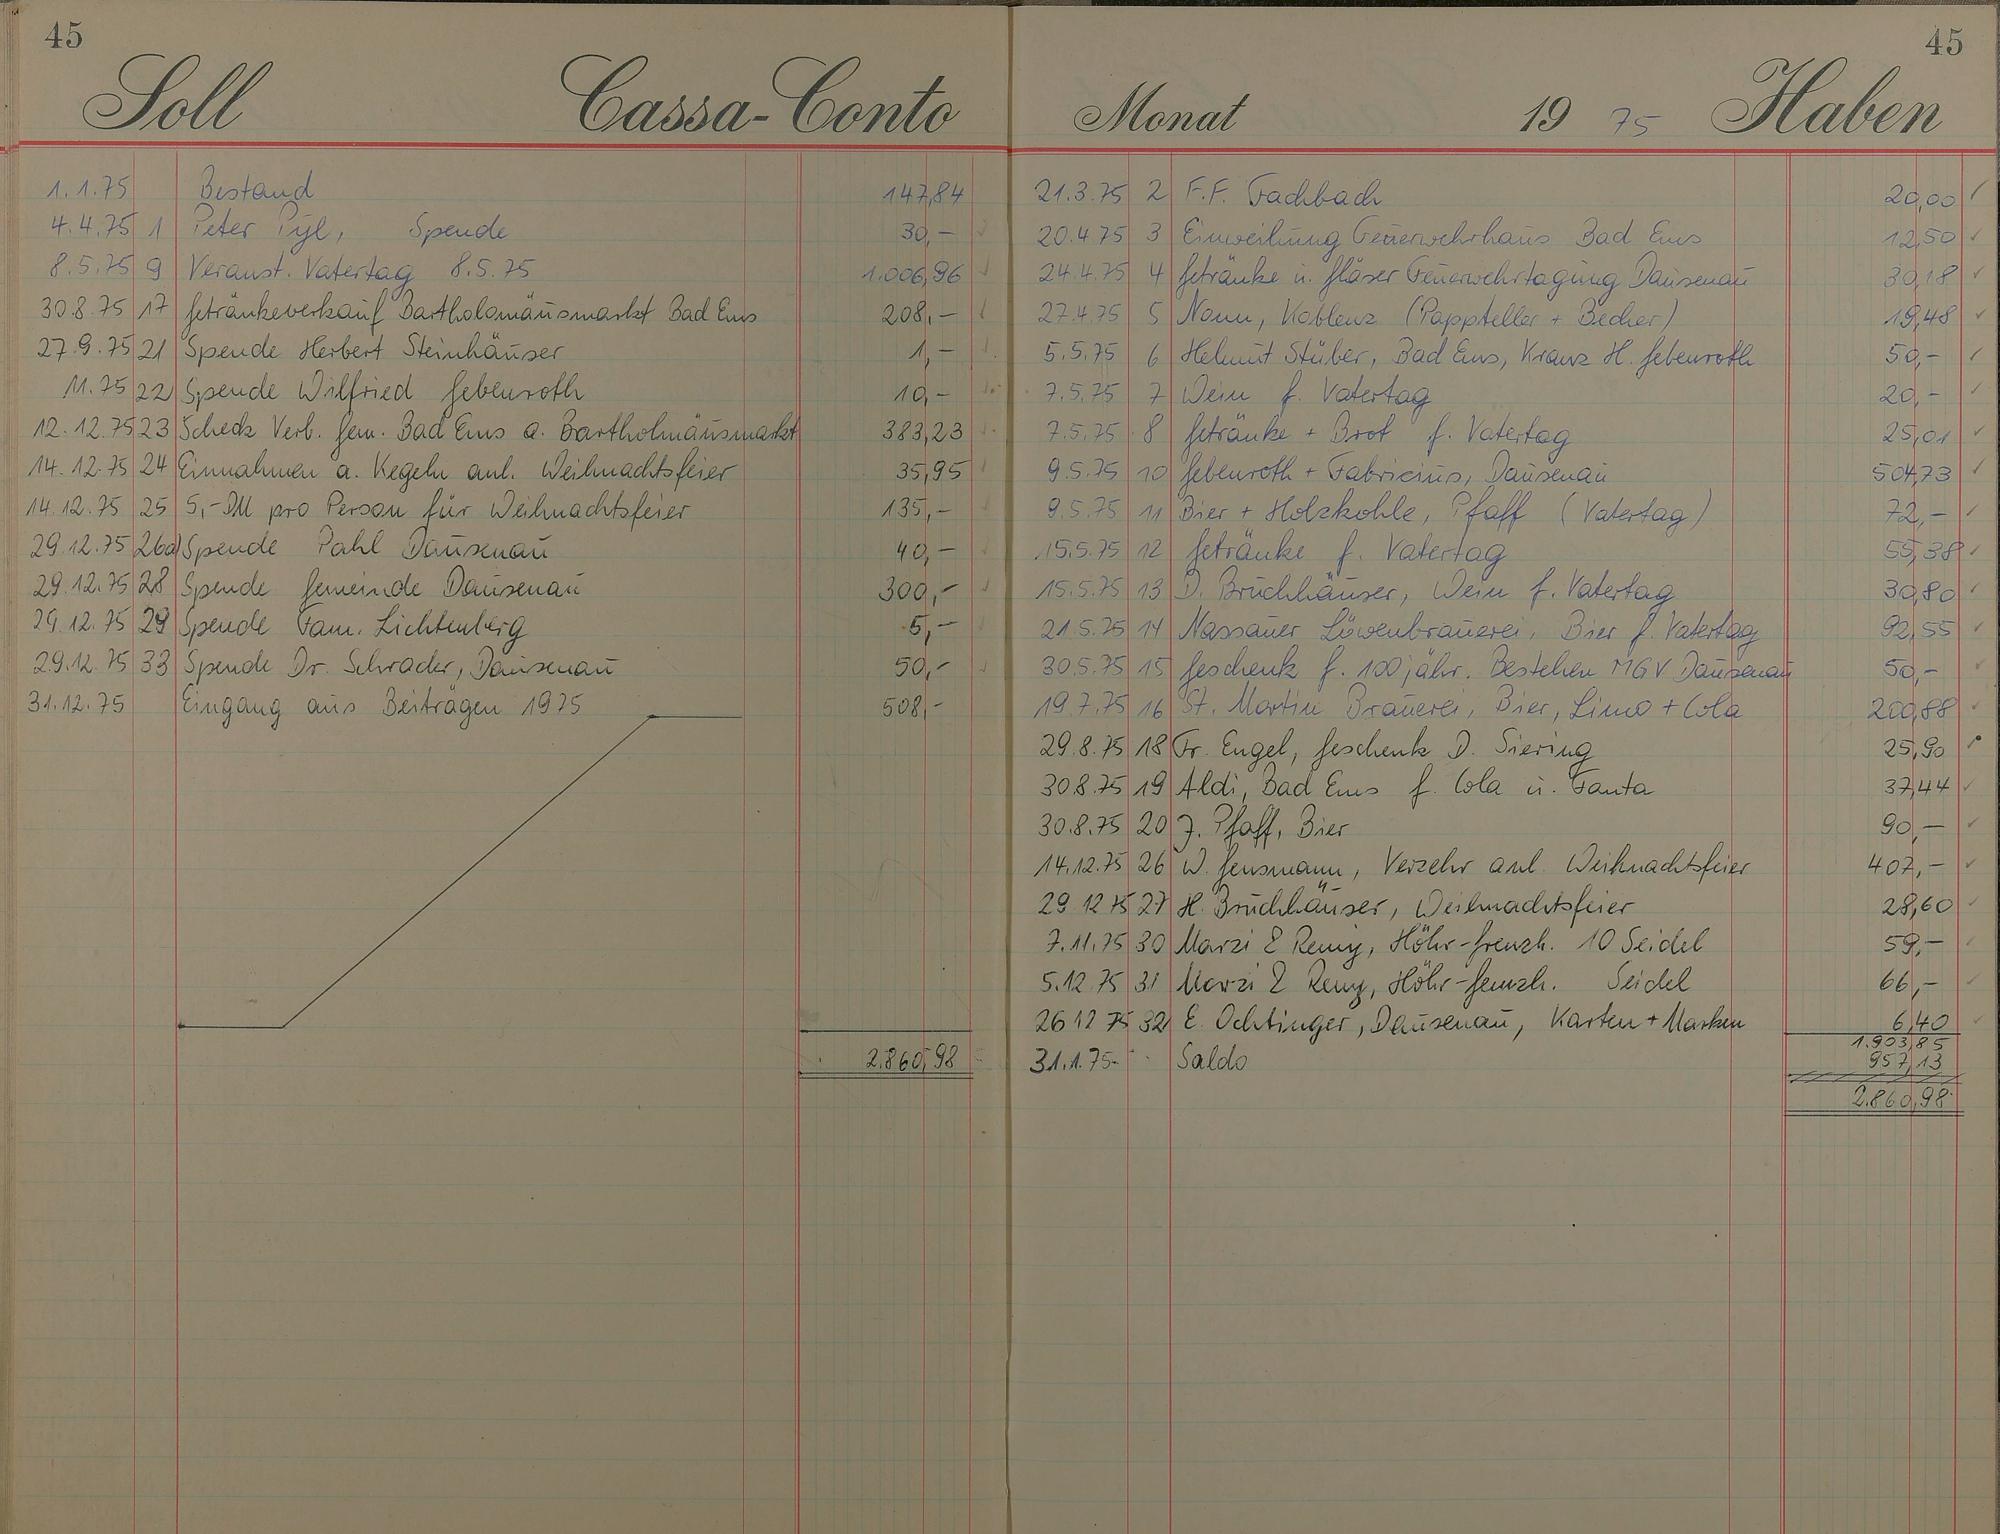 45
Soll Cassa-Conto
1.1.75 Bestand 147,84
4.4.75 1 Peter Pyl, Spende 30,—
8.5.75 9 Veranst. Vatertag 8.5.75 1.006,96
30.8.75 17 Getränkeverkauf Bartholomäusmarkt Bad Ems 208,—
27.9.75 21 Spende Herbert Steinhäuser 1,—
11.75 22 Spende Wilfried Gebenroth 10,—
12.12.75 23 Scheck Verb. Gem. Bad Ems a. Bartholmäusmarkt 383,23
14.12.75 24 Einnahmen a. Kegeln anl. Weihnachtsfeier 35,95
14.12.75 25 5,-DM pro Person für Weihnachtsfeier 135,—
29.12.75 26a Spende Pahl Dausenau 40,—
29.12.75 28 Spende Gemeinde Dausenau 300,—
29.12.75 29 Spende Fam. Lichtenberg 5,—
29.12.75 33 Spende Dr. Schrader, Dausenau 50,—
31.12.75 Eingang aus Beiträgen 1975 508,—
2.860,98
45
Monat 19 75 Haben
21.3.75 2 F.F. Fachbach 20,00
20.4.75 3 Einweihung Feuerwehrhaus Bad Ems 12,50
24.4.75 4 Getränke u. Gläser Feuerwehrtagung Dausenau 30,18
27.4.75 5 Nonn, Koblenz (Pappteller + Becher) 19,48
5.5.75 6 Helmut Stüber, Bad Ems, Kranz H. Gebenroth 50,—
7.5.75 7 Wein f. Vatertag 20,—
7.5.75 8 Getränke + Brot f. Vatertag 25,01
9.5.75 10 Gebenroth + Fabricius, Dausenau 504,73
9.5.75 11 Bier + Holzkohle, Pfaff (Vatertag) 72,—
15.5.75 12 Getränke f. Vatertag 55,38
15.5.75 13 D. Bruchhäuser, Wein f. Vatertag 30,80
21.5.75 14 Nassauer Löwenbrauerei, Bier f. Vatertag 92,55
30.5.75 15 Geschenk f. 100jähr. Bestehen MGV Dausenau 50,—
19.7.75 16 St. Martin Brauerei, Bier, Limo + Cola 200,88
29.8.75 18 Fr. Engel, Geschenk D. Siering 25,90
30.8.75 19 Aldi, Bad Ems f. Cola u. Fanta 37,44
30.8.75 20 J. Pfaff, Bier 90,—
14.12.75 26 W. Gensmann, Verzehr anl. Weihnachtsfeier 407,—
29.12.75 27 H. Bruchhäuser, Weihnachtsfeier 28,60
7.11.75 30 Marzi & Remy, Höhr-Grenzh. 10 Seidel 59,—
5.12.75 31 Marzi & Remy, Höhr-Genzh. Seidel 66,—
26.12.75 32 E. Ochtinger, Dausenau, Karten + Marken 6,40
1.903,85
31.1.75 Saldo 957,13
2.860,98